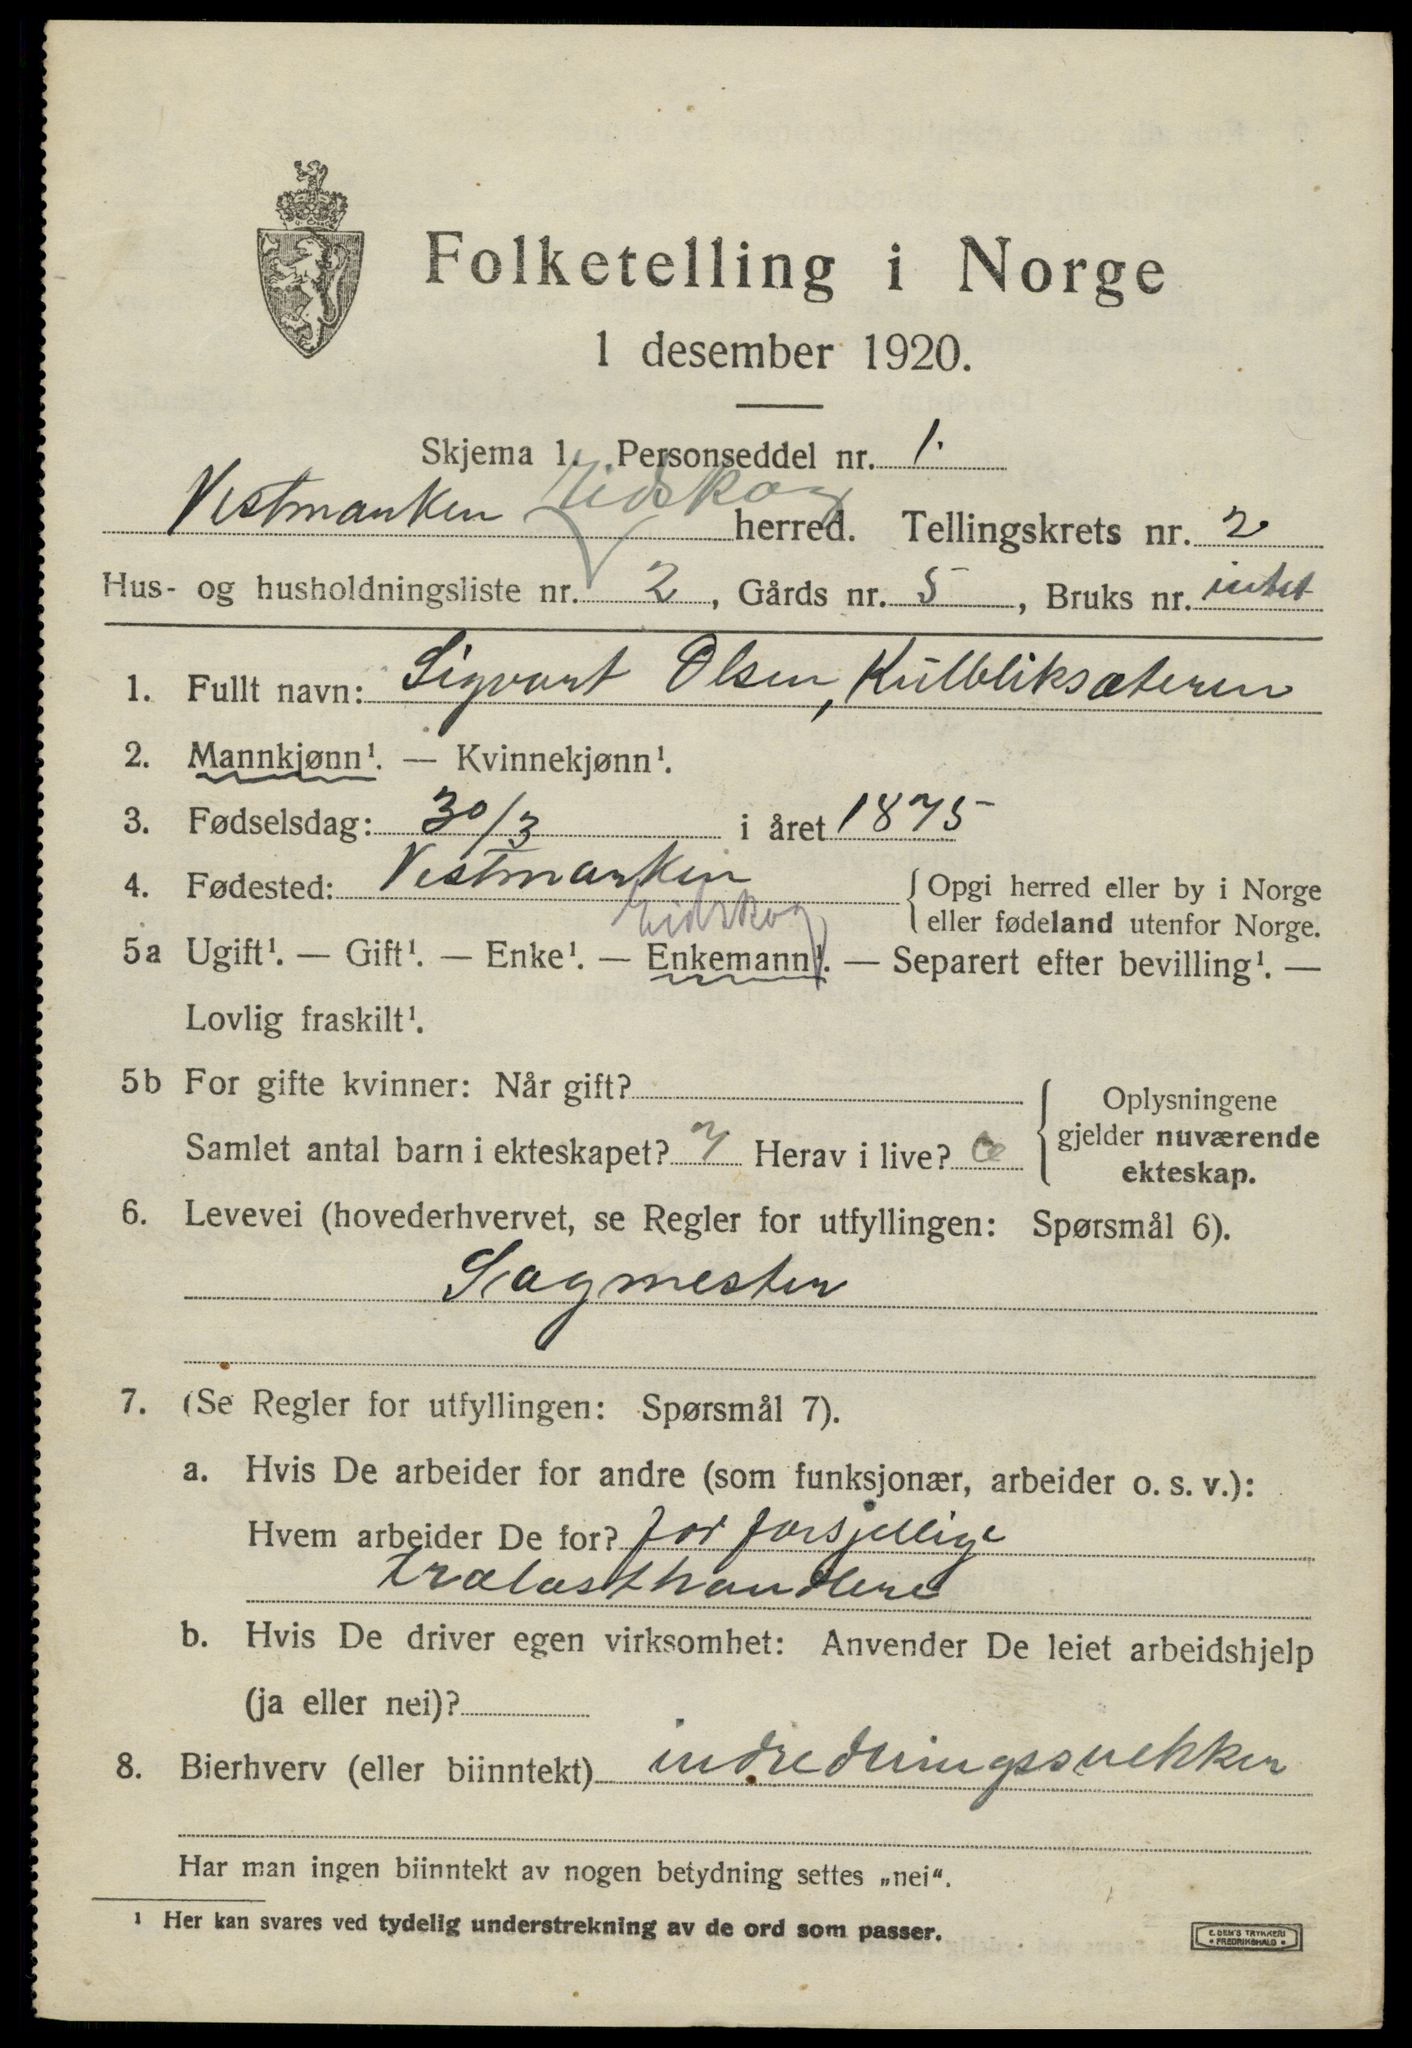 Folketelling i Norge
1 desember 1920.
Skjema 1. Personseddel nr. 1.
Vestmarken Eidskog herred. Tellingskrets nr. 2
Hus- og husholdningsliste nr. 2, Gårds nr. 5, Bruks nr. intet
1. Fullt navn: Sigvart Olsen, Kulbliksæteren
2. Mannkjønn¹. — Kvinnekjønn¹.
3. Fødselsdag: 30/3 i året 1875
4. Fødested: Vestmarken { Opgi herred eller by i Norge
Eidskog eller fødeland utenfor Norge.
5a Ugift¹. — Gift¹. — Enke¹. — Enkemann¹. — Separert efter bevilling¹. —
Lovlig fraskilt¹.
5b For gifte kvinner: Når gift? { Oplysningene
Samlet antal barn i ekteskapet? 7 Herav i live? gjelder nuværende
ekteskap.
6. Levevei (hovederhvervet, se Regler for utfyllingen: Spørsmål 6).
Sagmester
7. (Se Regler for utfyllingen: Spørsmål 7).
a. Hvis De arbeider for andre (som funksjonær, arbeider o. s. v.):
Hvem arbeider De for? for forsjellige
trælasthandlere
b. Hvis De driver egen virksomhet: Anvender De leiet arbeidshjelp
(ja eller nei)?
8. Bierhverv (eller biinntekt) indredningssnekker
Har man ingen biinntekt av nogen betydning settes „nei“.
¹ Her kan svares ved tydelig understrekning av de ord som passer.
E. SEM'S TRYKKERI
• FREDRIKSHALD •